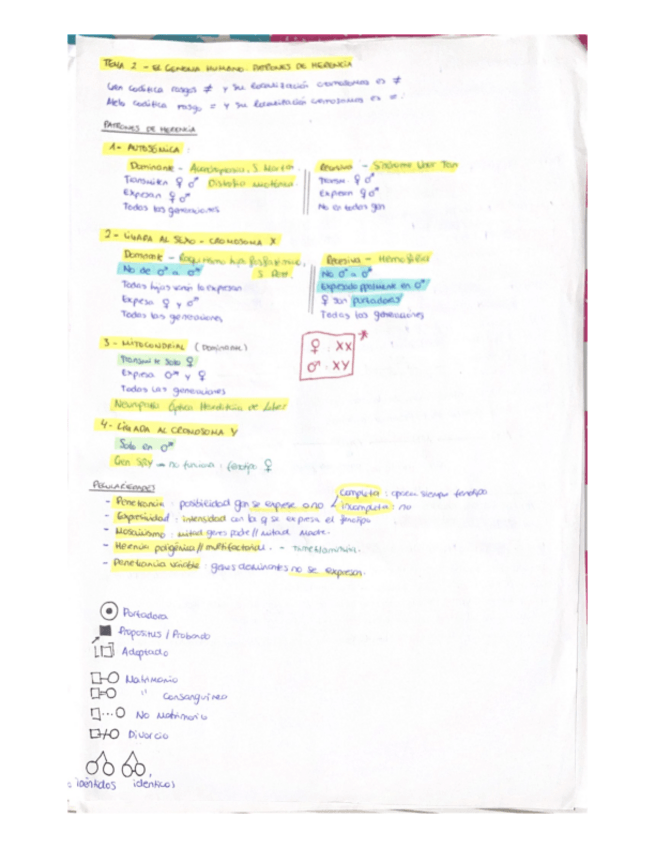 TEMA 2 - EL GENOMA HUMANO. PATRONES DE HERENCIA
Gen codifica rasgos ≠ y su localización cromosómica es ≠
Alelo codifica rasgo = y su localización cromosómica es =
PATRONES DE HERENCIA
1- AUTOSÓMICA:
Dominante -
Transmiten ♀ ♂ Distrofia miotónica
Expresan ♀ ♂
Todas las generaciones
Recesiva - Síndrome
Transm. ♀ ♂
Expresan ♀ ♂
No en todas gen
2- LIGADA AL SEXO - CROMOSOMA X
Dominante - Raquitismo hipofosfatémico,
No de ♂ a ♂
Todas hijas serán lo expresan
Expresa ♀ y ♂
Todas las generaciones
Recesiva - Hemofilia
No ♂ a ♂
Expresado ppalmente en ♂
♀ son portadoras
Todas las generaciones
3- MITOCONDRIAL (Dominante)
Transmite solo ♀
Expresa ♂ y ♀
Todas las generaciones
Neuropatía Óptica Hereditaria de Leber
♀ : XX *
♂ : XY
4- LIGADA AL CROMOSOMA Y
Solo en ♂
Gen SRY → no funciona : fenotipo ♀
PECULIARIDADES
- Penetrancia : posibilidad gen se exprese o no
Completa : aparece siempre fenotipo
Incompleta : no
- Expresividad : intensidad con la q se expresa el fenotipo
- Mosaicismo : mitad genes padre // mitad madre.
- Herencia poligénica // multifactorial. -
- Penetrancia variable : genes dominantes no se expresan.
Portadora
Propositus / Probando
Adoptado
Matrimonio
" Consanguíneo
No Matrimonio
Divorcio
idénticos